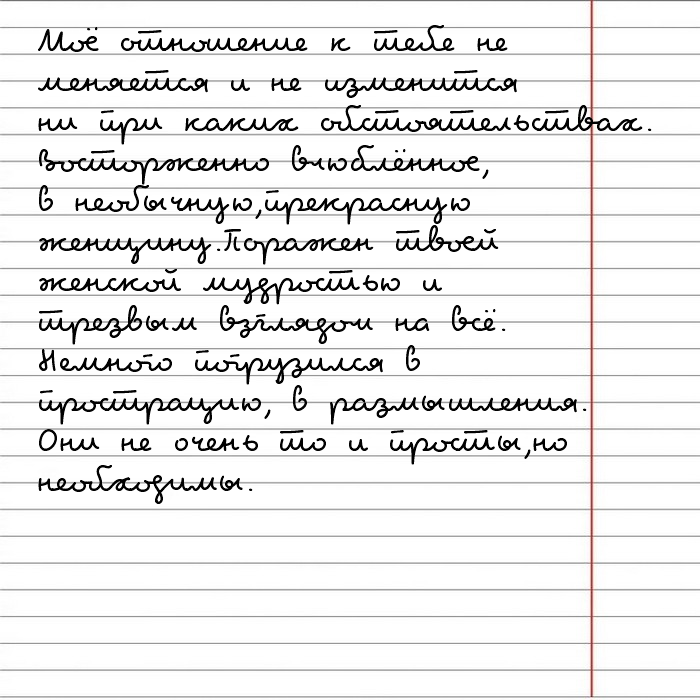 Моё отношение к тебе не
меняется и не изменится
ни при каких обстоятельствах.
Восторженно влюблённое,
в необычную,прекрасную
женщину.Поражен твоей
женской мудростью и
трезвым взглядом на всё.
Немного погрузился в
прострацию, в размышления.
Они не очень то и просты,но
необходимы.